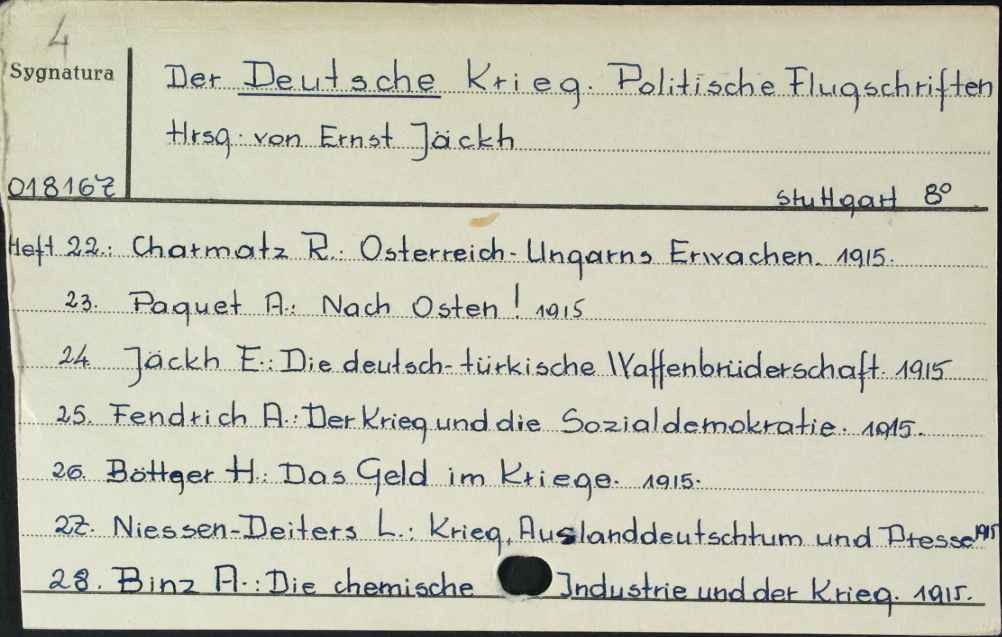 4
Sygnatura
Der Deutsche Krieg. Politische Flugschriften
Hrsg. von Ernst Jäckh
018167
Stuttgart 8°
Heft 22.: Charmatz R.: Osterreich-Ungarns Erwachen. 1915.
23. Paquet A.: Nach Osten! 1915
24. Jäckh E.: Die deutsch-türkische Waffenbrüderschaft. 1915
25. Fendrich A.: Der Krieg und die Sozialdemokratie. 1915.
26. Böttger H.: Das Geld im Kriege. 1915.
27. Niessen-Deiters L.: Krieg, Auslanddeutschtum und Presse 1915
28. Binz A.: Die chemische Industrie und der Krieg. 1915.